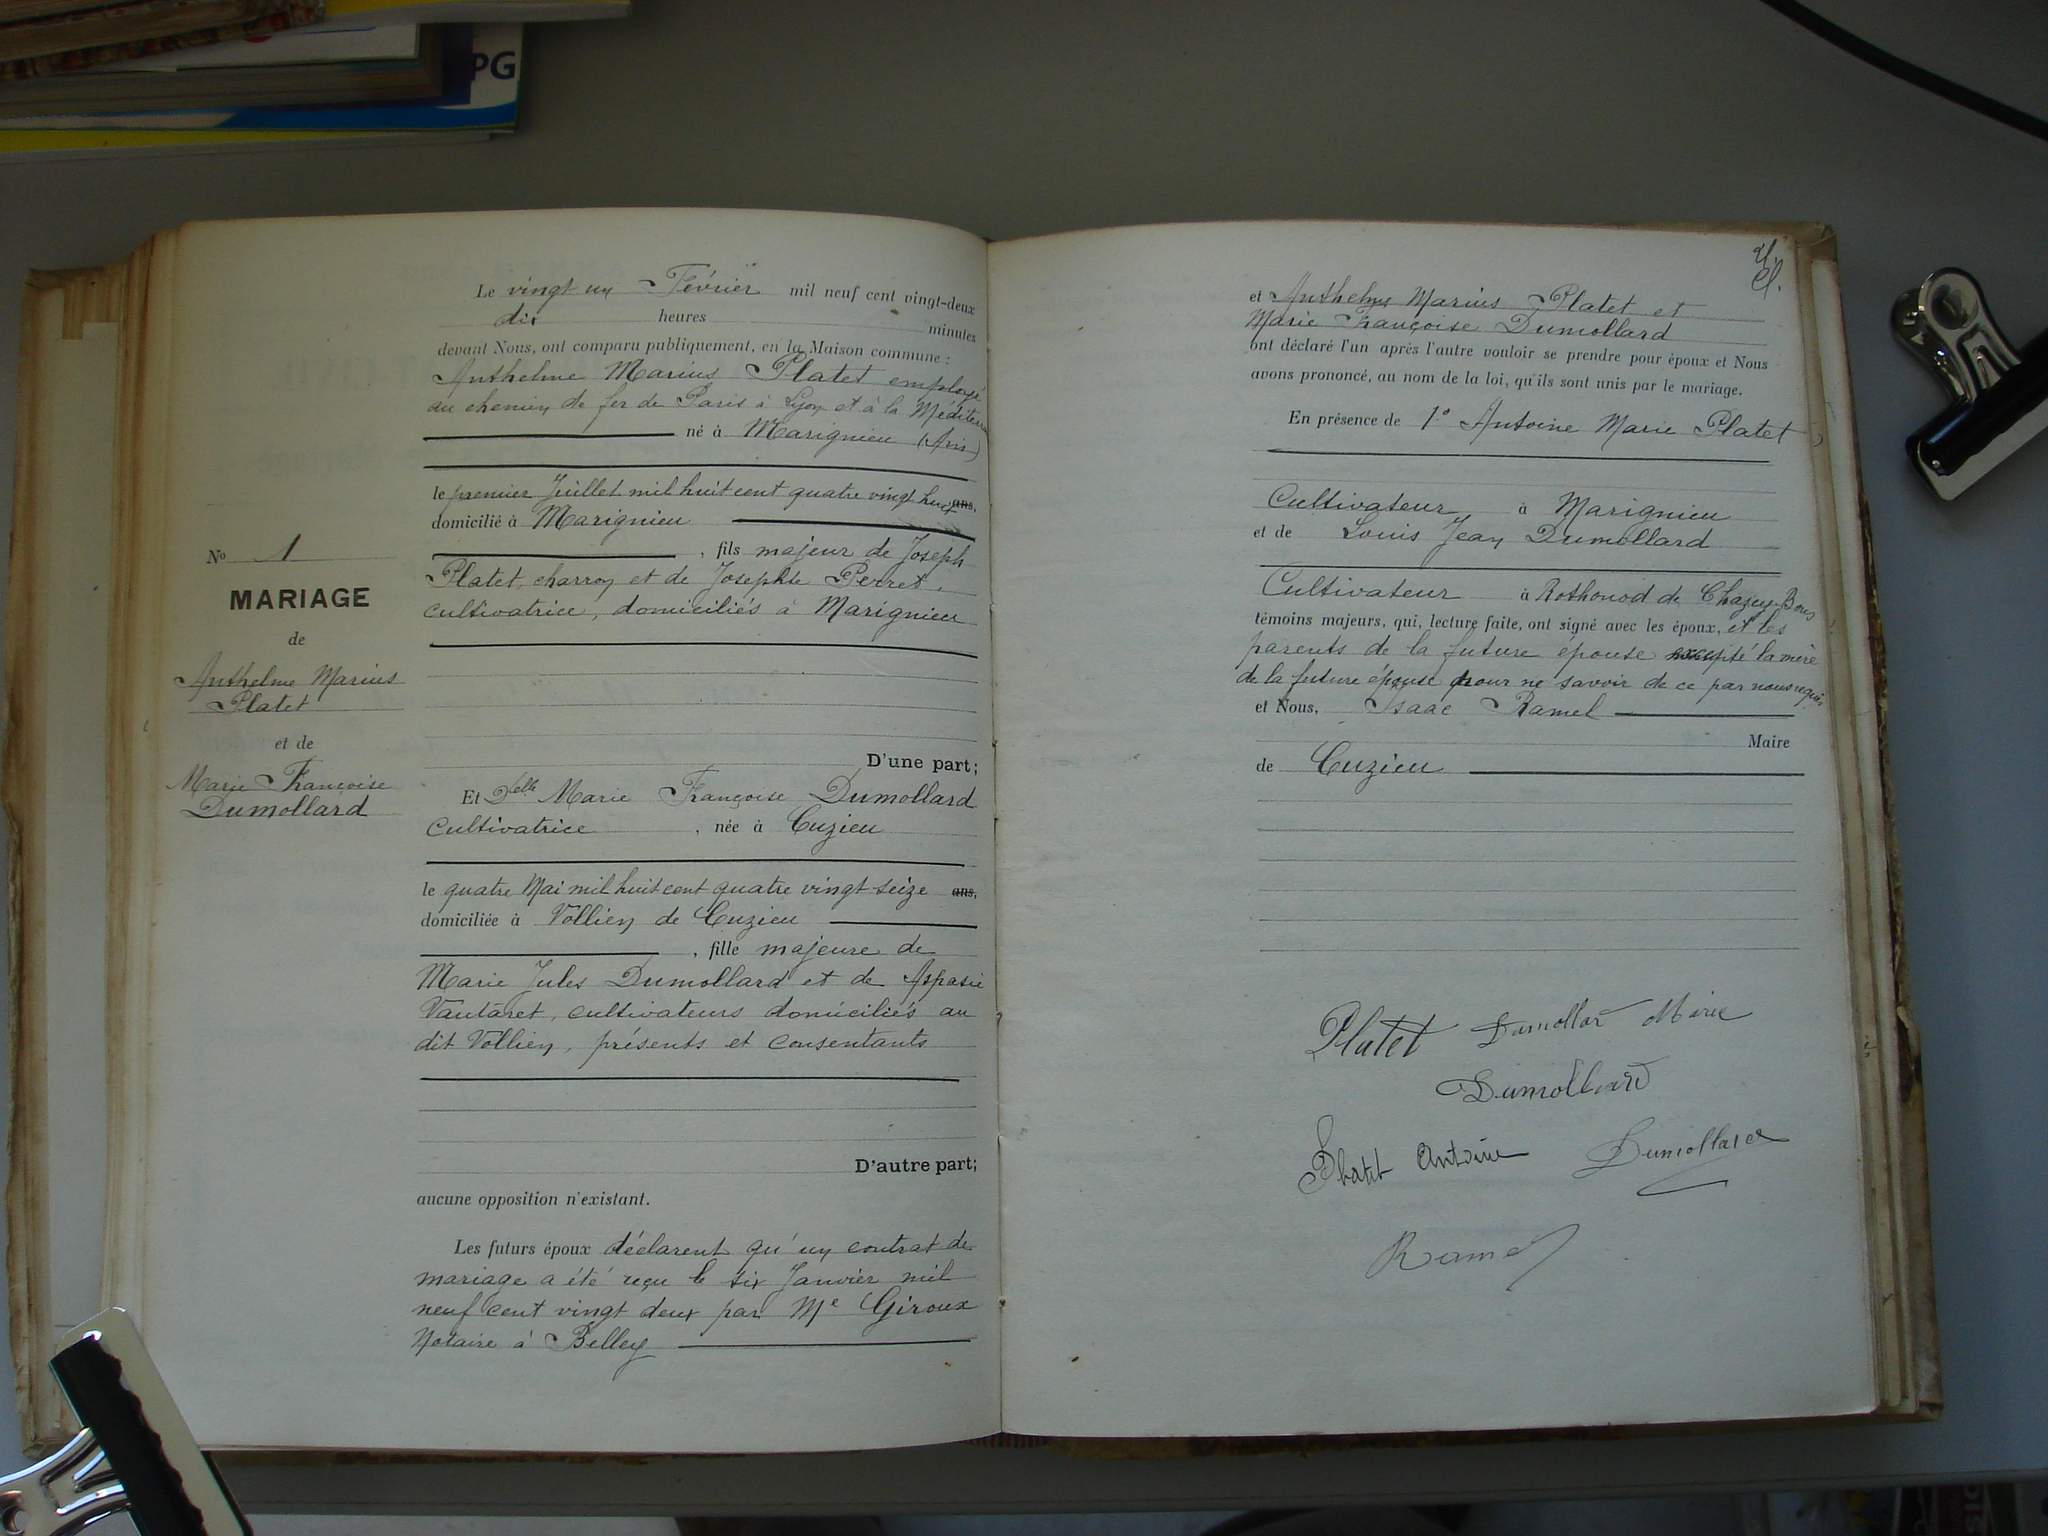 PG
Le vingt un Février mil neuf cent vingt-deux
dix heures minutes
devant Nous, ont comparu publiquement, en la Maison commune :
Anthelme Marius Platet employé
au chemin de fer de Paris à Lyon et à la Méditerra
né à Marignieu (Ain)
le premier Juillet mil huit cent quatre vingt huit ans,
domicilié à Marignieu
, fils majeur de Joseph
Platet, charron et de Josephte Perret,
cultivatrice, domiciliés à Marignieu
D'une part;
Et Delle Marie Françoise Dumollard
Cultivatrice , née à Cuzieu
le quatre Mai mil huit cent quatre vingt seize ans,
domiciliée à Vollien de Cuzieu
, fille majeure de
Marie Jules Dumollard et de Aspasie
Vautaret, cultivateurs domiciliés au
dit Vollien, présents et consentants
D'autre part;
aucune opposition n'existant.
Les futurs époux déclarent qu'un contrat de
mariage a été reçu le six Janvier mil
neuf cent vingt deux par Me Giroux
Notaire à Belley
No 1
MARIAGE
de
Anthelme Marius
Platet
et de
Marie Françoise
Dumollard
et Anthelme Marius Platet et
Marie Françoise Dumollard
ont déclaré l'un après l'autre vouloir se prendre pour époux et Nous
avons prononcé, au nom de la loi, qu'ils sont unis par le mariage.
En présence de 1° Antoine Marie Platet
Cultivateur à Marignieu
et de Louis Jean Dumollard
Cultivateur à Rothonod de Chazey-Bons
témoins majeurs, qui, lecture faite, ont signé avec les époux, et les
parents de la future épouse excepté la mère
de la future épouse pour ne savoir de ce par nous requis
et Nous, Isaac Ramel
Maire
de Cuzieu
Platet Dumollar Marie
Dumollard
Platet Antoine Dumollard
Ramel